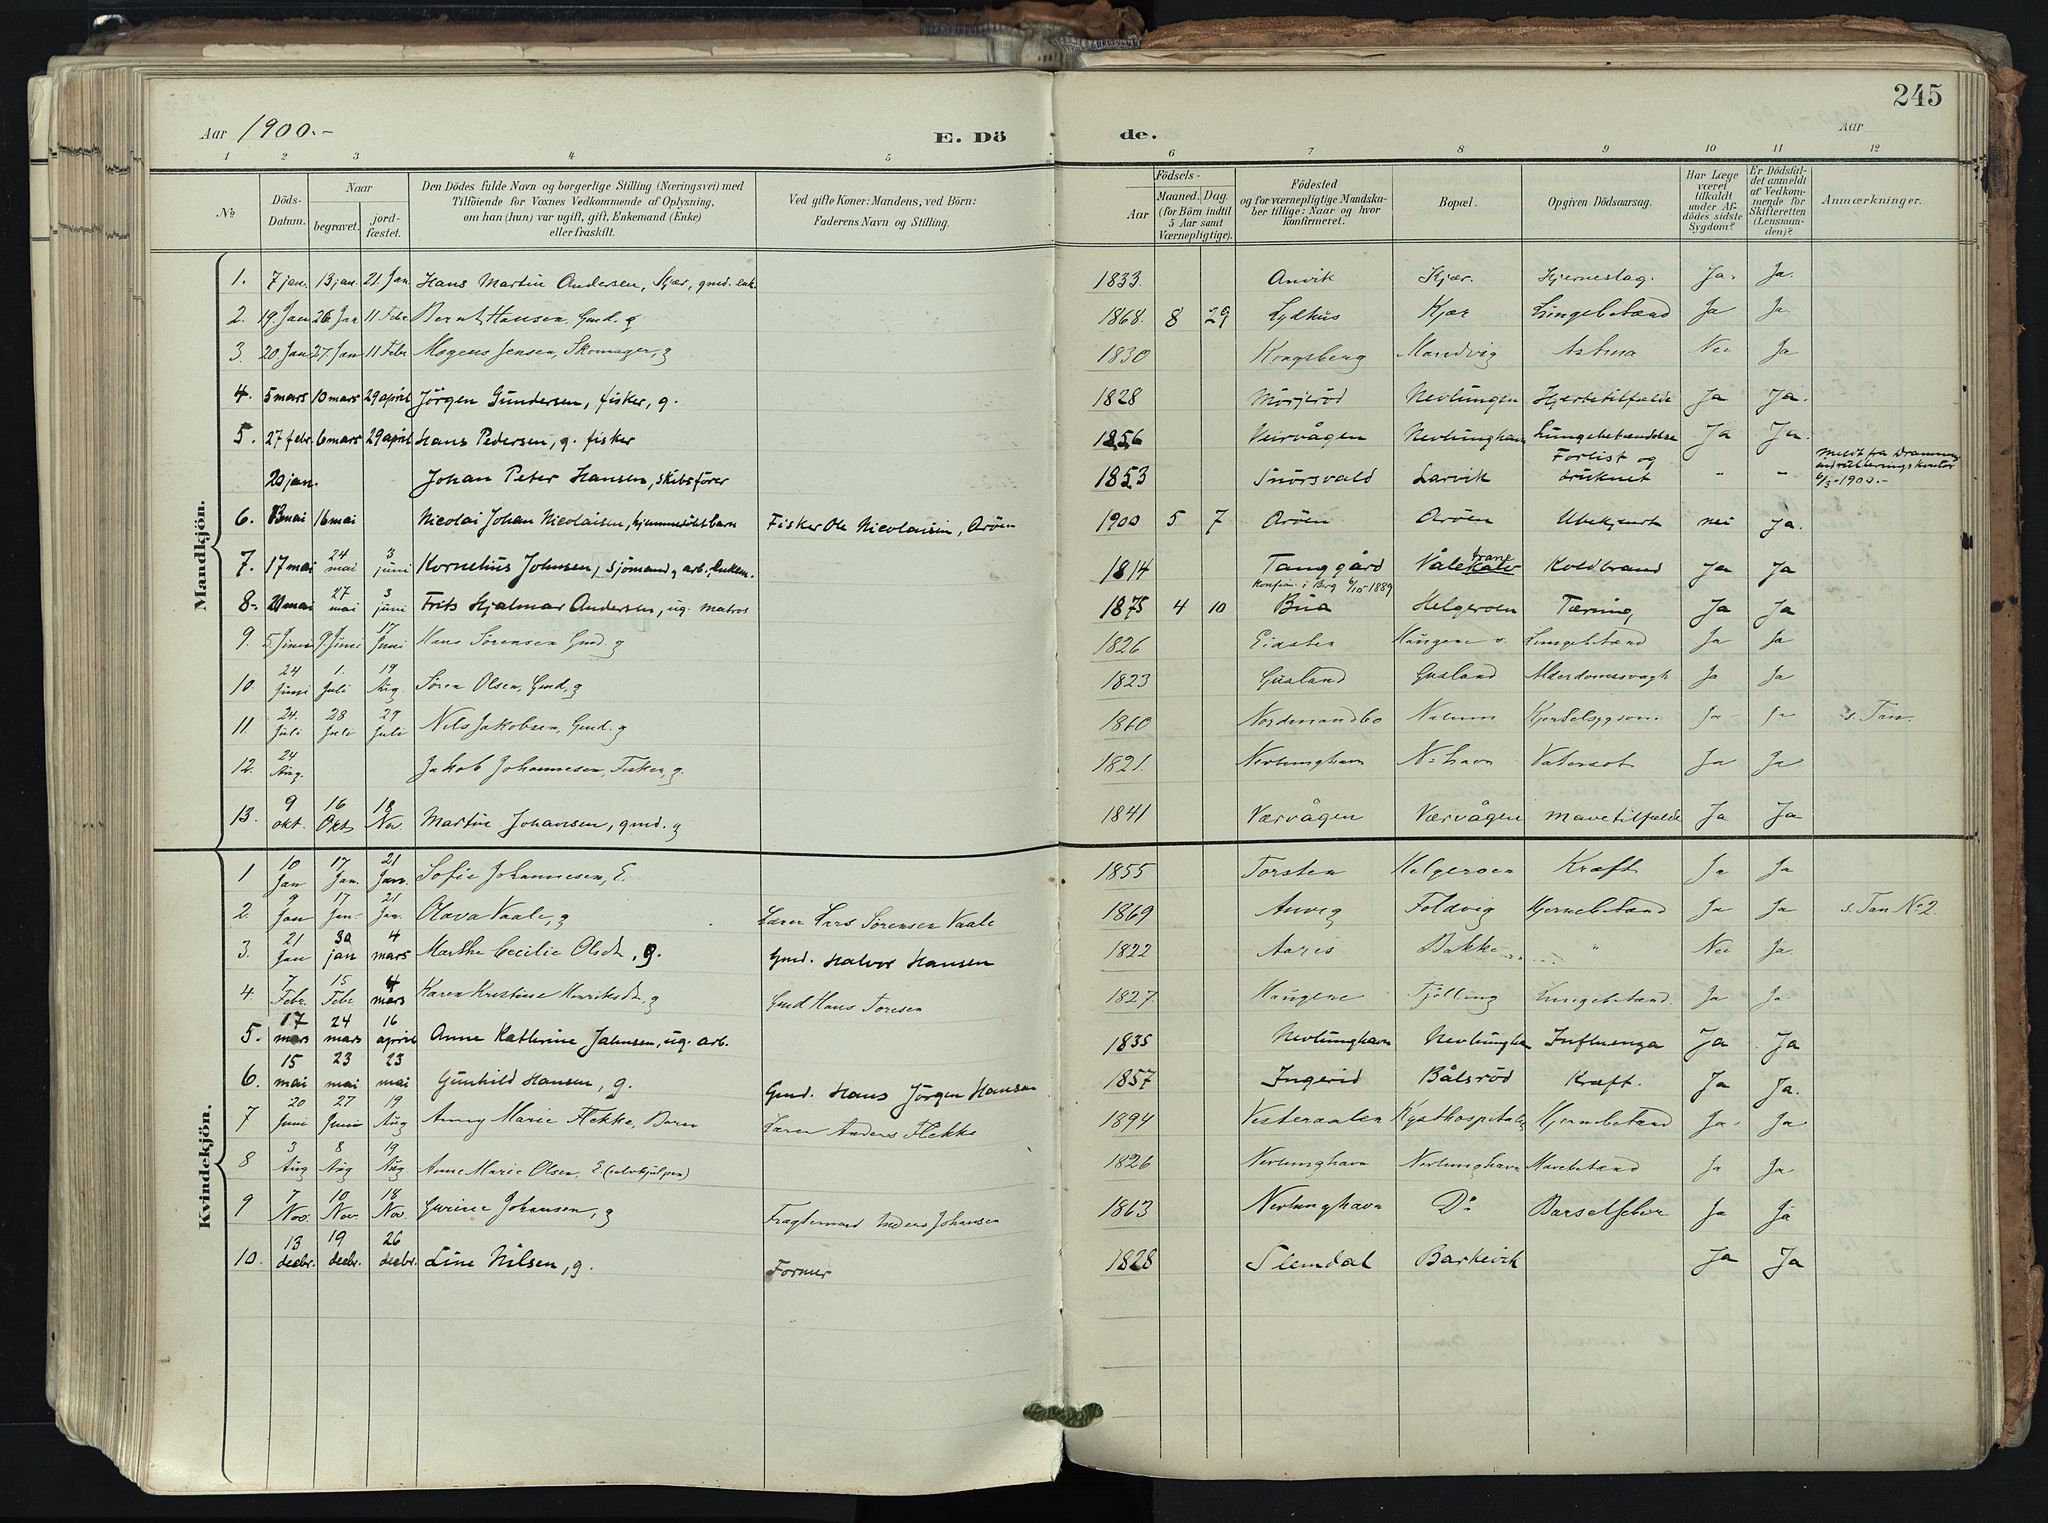 245
Aar 1900.-
E. Döde.
Aar
1 2 3 4 5 6 7 8 9 10 11 12
No
Döds-Datum.
Naar
begravet.
jordfæstet.
Den Dödes fulde Navn og borgerlige Stilling (Næringsvei) med
Tilföiende for Voxnes Vedkommende af Oplysning,
om han (hun) var ugift, gift, Enkemand (Enke)
eller fraskilt.
Ved gifte Koner: Mandens, ved Börn:
Faderens Navn og Stilling.
Födsels-
Aar
Maaned. Dag.
(for Börn indtil
5 Aar samt
Værnepligtige).
Födested
og for værnepligtige Mandska-
ber tillige: Naar og hvor
konfirmeret.
Bopæl.
Opgiven Dödsaarsag.
Har Læge
været
tilkaldt
under Af-
dödes sidste
Sygdom?
Er Dödsfal-
det anmeldt
af Vedkom-
mende for
Skifteretten
(Lensman-
den)?
Anmærkninger.
Mandkjön.
1. 7 jan. 13 jan. 21. Jan Hans Martin Andersen, Kjær, gmd. enk. 1833. Anvik Kjær. Hjerneslag. Ja. Ja.
2. 19 Jan 26 Jan 11 Febr Bernt Hansen, Gmd. g 1868. 8 29 Lydhus Kjær Lungebetænd Ja Ja.
3. 20. Jan 27. Jan 11 Febr Mogens Jensen, Skomager, g 1830 Kongsberg Mandvig Astma Nei Ja
4. 5 mars 10 mars 29 april Jörgen Gundersen, fisker, g. 1828 Mörjeröd Nevlungen Hjertetilfælde Ja Ja.
5. 27 febr. 6 mars 29 april Hans Pedersen, g. fisker 1856 Veirvågen Nevlunghavn Lungebetændelse Ja Ja.
20 jan. Johan Peter Hansen, skibsförer 1853 Snörsvald Larvik Forlist og druknet " " Meldt fra Drammens indrulleringskontor 6/3-1900.-
6. 13 mai 16 mai Nicolai Johan Nicolaisen, hjemmedöbt barn Fisker Ole Nicolaisen, Aröen 1900 5 7 Aröen Aröen Ubekjendt nei Ja.
7. 17 mai 24 mai 3 juni Kornelius Johnsen, sjömand, arb., enkem. 1814 Tanggård Våletrane Koldbrand Ja Ja
8. 20 mai 27 mai 3 juni Frits Hjalmar Andersen, ug. matros 1875 4 10 Konfir. i Berg 6/10-1889 Bua Helgeroen Tæring, Ja Ja
9. 5. Juni 9. Juni 17 Juni Hans Sörensen Gmd. g 1826 Eidsten Haugene Lungebetænd Ja Ja
10. 24 Juni 1. Juli 19 Aug. Sören Olsen, Gmd, g 1823 Gusland Gusland Alderdomssvagh Ja Ja
11. 24. Juli 28 Juli 29 Juli Nils Jakobsen, Gmd. g 1860 Nordmandbo Nalum Hjertesygdom Ja Ja s. Tan.
12. 24 Aug. Jakob Johannesen, Fisker, g. 1821. Nevlunghavn N-havn Vatersot Ja Ja
13. 9 okt. 16 Okt 18 Nov Martin Johansen, gmd. g 1841 Værvågen Værvågen Mavetilfælde Ja Ja
Kvindekjön.
1 10 Jan 17 Jan. 21 Jan. Sofie Johannesen, E. 1855 Torsten Helgeroen Kræft Ja Ja
2. 9 Jan 17 Jan. 21 Jan. Olava Vaale, g Lærer Lars Sörensen Vaale 1869 Anvig Foldvig Hjernebetænd Ja Ja s. Tan No 2.
3. 21 Jan 30 jan 4 mars Marthe Cecilie Olsdt, g. Gmd. Halvor Hansen 1822 Aares Bakke " Nei Ja.
4. 7 Febr. 15 Febr 4 mars Karen Kristine Henriksdt, g Gmd Hans Toresen 1827. Haugene Tjölling Lungebetænd. Ja Ja
5. 17 mars 24 mars 16 april Anne Kathrine Jahnsen, ug. arb. 1835 Nevlunghavn Nevlunghavn Influenza Ja Ja
6. 15 mai 23 mai 23 mai Gunhild Hansen, g. Gmd. Hans Jörgen Hansen 1857 Ingerid Bålsröd Kræft. Ja Ja.
7 20 Juni 27 Juni 19 Aug Anny Marie Flekke, Barn Lærer Anders Flekke 1894 Vesteraalen Kysthospitalet Hjernebetænd Ja Ja
8 3 Aug 8 Aug 19 Aug Anne Marie Olsen, E. (selvhjulpen) 1826 Nevlunghavn Nevlunghavn Mavebetænd Ja Ja.
9 7 Nov. 10 Nov. 18 Nov. Gurine Johansen, g Fragtemand Anders Johansen 1863 Nevlunghavn Do Barselfeber Ja Ja
10. 13 decbr. 19 decbr. 26 decbr. Line Nilsen, g. Former 1828 Slemdal Barkevik Ja Ja